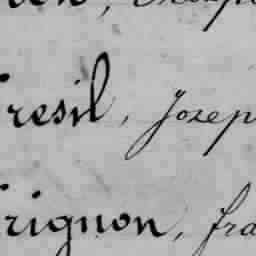 resil, Josep
rignon, fra